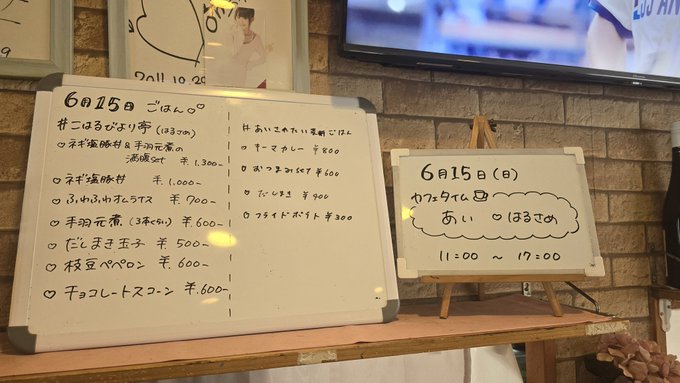 2011.12.29
6月15日 ごはん♡♡
#こはるびより亭 (はるさめ)
♡ネギ塩豚丼 & 手羽元煮の
満腹set ¥.1,300-
♡ネギ塩豚丼 ¥.1,000-
♡ふわふわオムライス ¥.700-
♡手羽元煮 (3本くらい) ¥.600-
♡だしまき玉子 ¥.500-
♡枝豆ペペロン ¥.600-
♡チョコレートスコーン ¥.600-
#あいされたい ごはん
キーマカレー ¥800
おつまみset ¥600
だしまき ¥400
フライドポテト ¥300
6月15日(日)
カフェタイム
あい ♡はるさめ
11:00 ~ 17:00